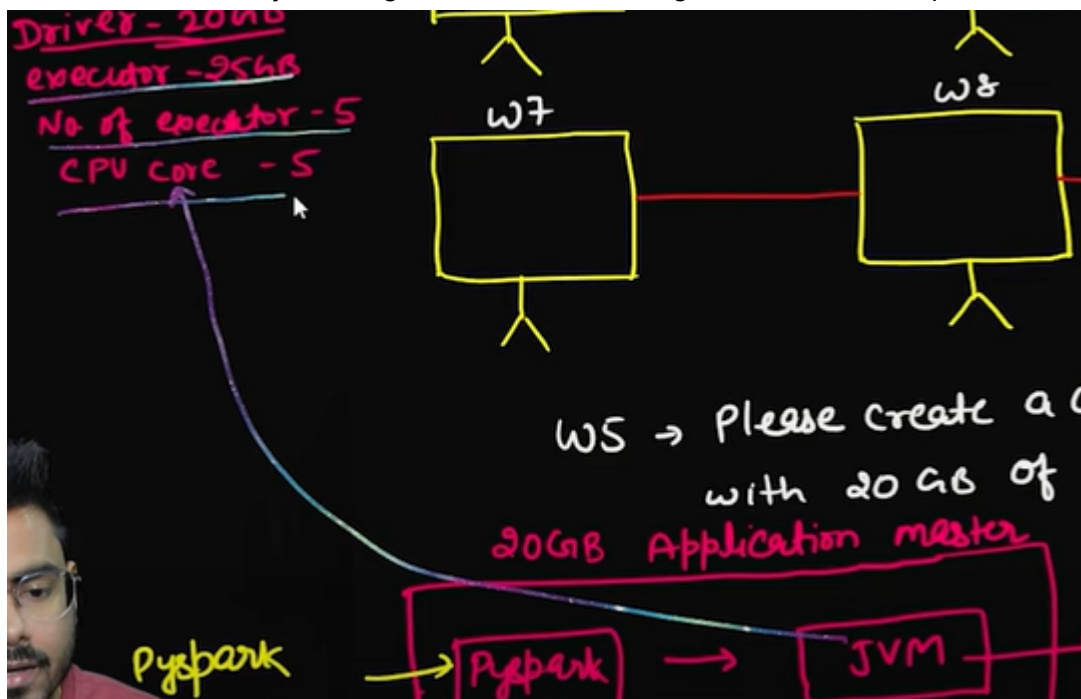 Driver - 20GB
executor - 25GB
No of executor - 5
CPU core - 5
W7
W8
W5 → Please create a
with 20 GB of
20GB Application master
Pyspark → Pyspark → JVM